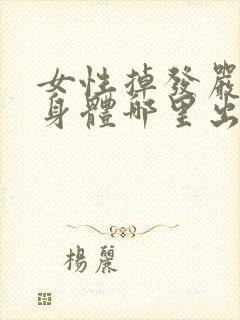 女性掉發嚴
身體哪里出
楊麗